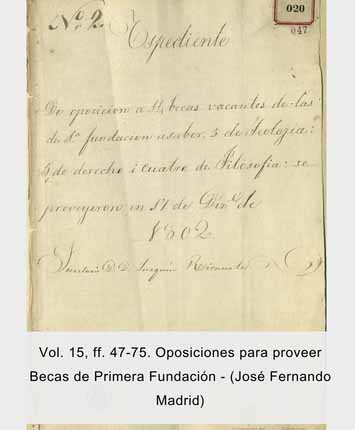 020
047
Nº 2.
Espediente
De oposicion a 14 becas vacantes de las
de 1ª fundacion a saber, 5 de Teologia:
5 de derecho i cuatro de Filosofia: se
proveyeron en 31 de Dive. de
1802
D. D. Joaquin
Vol. 15, ff. 47-75. Oposiciones para proveer
Becas de Primera Fundación - (José Fernando
Madrid)